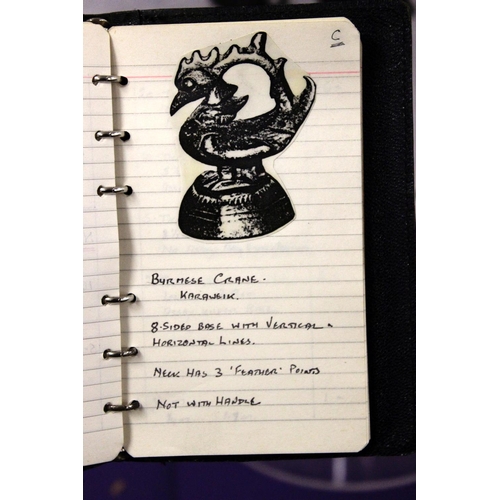 C
BURMESE CRANE.
KARAWEIK.
8-SIDED BASE WITH VERTICAL &
HORIZONTAL LINES.
NECK HAS 3 'FEATHER' POINTS
NOT WITH HANDLE